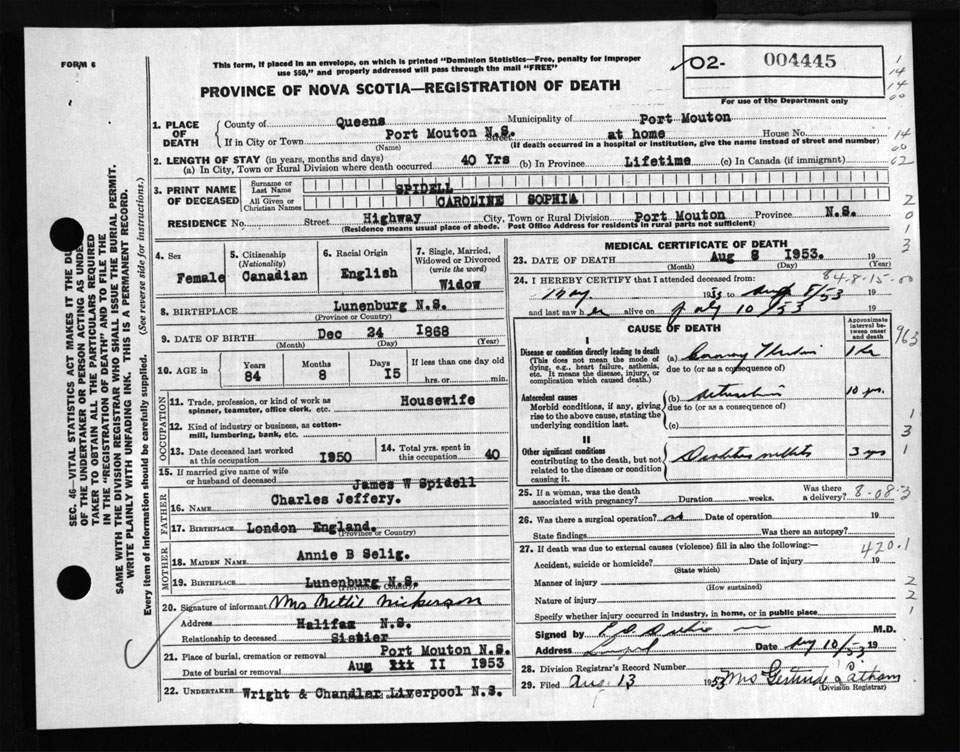 FORM 6
This form, if placed in an envelope, on which is printed "Dominion Statistics—Free, penalty for improper
use $50," and properly addressed will pass through the mail "FREE"
02- 004445
For use of the Department only
PROVINCE OF NOVA SCOTIA—REGISTRATION OF DEATH
1. PLACE OF DEATH
County of Queens Municipality of Port Mouton
If in City or Town Port Mouton N.S. Street at home House No.
(Name) (If death occurred in a hospital or institution, give the name instead of street and number)
2. LENGTH OF STAY (in years, months and days)
(a) In City, Town or Rural Division where death occurred 40 Yrs (b) In Province Lifetime (c) In Canada (if immigrant)
3. PRINT NAME OF DECEASED
Surname or Last Name SPIDELL
All Given or Christian Names CAROLINE SOPHIA
RESIDENCE No. Street Highway City, Town or Rural Division Port Mouton Province N.S.
(Residence means usual place of abode. Post Office Address for residents in rural parts not sufficient)
4. Sex Female
5. Citizenship (Nationality) Canadian
6. Racial Origin English
7. Single, Married, Widowed or Divorced (write the word) Widow
8. BIRTHPLACE Lunenburg N.S.
(Province or Country)
9. DATE OF BIRTH Dec 24 1868
(Month) (Day) (Year)
10. AGE in Years 84 Months 8 Days 15 If less than one day old
hrs. or min.
OCCUPATION
11. Trade, profession, or kind of work as spinner, teamster, office clerk, etc. Housewife
12. Kind of industry or business, as cotton-mill, lumbering, bank, etc.
13. Date deceased last worked at this occupation 1950
14. Total yrs. spent in this occupation 40
15. If married give name of wife or husband of deceased James W Spidell
FATHER
16. NAME Charles Jeffery.
17. BIRTHPLACE London England.
(Province or Country)
MOTHER
18. MAIDEN NAME Annie B Selig.
19. BIRTHPLACE Lunenburg N.S.
(Province or Country)
20. Signature of informant Mrs Nettie Nickerson
Address Halifax N.S.
Relationship to deceased Sistier
21. Place of burial, cremation or removal Port Mouton N.S.
Date of burial or removal Aug III II 1953
22. UNDERTAKER Wright & Chandler Liverpool N.S.
MEDICAL CERTIFICATE OF DEATH
23. DATE OF DEATH Aug 8 1953.
(Month) (Day) (Year)
84-8-15-00
24. I HEREBY CERTIFY that I attended deceased from:
May 1953 to Aug 8/53 19
and last saw her alive on July 10/53 19
CAUSE OF DEATH
Approximate interval between onset and death
I
Disease or condition directly leading to death
(This does not mean the mode of dying, e.g., heart failure, asthenia, etc. It means the disease, injury, or complication which caused death.)
(a)
due to (or as a consequence of)
Antecedent causes
Morbid conditions, if any, giving rise to the above cause, stating the underlying condition last.
(b) 10 yrs.
due to (or as a consequence of)
(c)
II
Other significant conditions
contributing to the death, but not related to the disease or condition causing it.
Diabetes 3 yrs
963
25. If a woman, was the death associated with pregnancy? Duration weeks. Was there a delivery?
26. Was there a surgical operation? no Date of operation 19
State findings Was there an autopsy?
27. If death was due to external causes (violence) fill in also the following:—
420.1
Accident, suicide or homicide? Date of injury 19
(State which)
Manner of injury
(How sustained)
Nature of injury
Specify whether injury occurred in industry, in home, or in public place
Signed by M.D.
Address Date Aug 10/53 19
28. Division Registrar's Record Number
29. Filed Aug. 13 1953 Mrs Gertrude Latham
(Division Registrar)
SEC. 46—VITAL STATISTICS ACT MAKES IT THE DU
OF THE UNDERTAKER OR PERSON ACTING AS UNDE
TAKER TO OBTAIN ALL THE PARTICULARS REQUIRED
IN THE "REGISTRATION OF DEATH" AND TO FILE THE
SAME WITH THE DIVISION REGISTRAR WHO SHALL ISSUE THE BURIAL PERMIT.
WRITE PLAINLY WITH UNFADING INK. THIS IS A PERMANENT RECORD.
Every item of information should be carefully supplied. (See reverse side for instructions.)